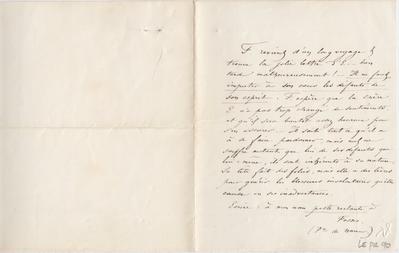 F. revient d'un long voyage &
trouve la jolie lettre E.E. bien
tard malheureusement! — Il ne faut
imputer à son cœur les défauts de
son esprit. J'espère que la chère
E. n'a pas trop changé de sentiments
et qu'il sera bientôt assez heureux pour
s'en assurer. Il sait tout ce qu'il a
à se faire pardonner, mais nul ne
souffre autant que lui de ses défauts que
lui-même, ils sont inhérents à sa nature.
Sa tête fait des folies, mais elle a des
pour guérir les blessures involontaires qu'elle
cause en ses inadvertances.
Écrire à mon nom poste restante à
(Pce de
LE PR 90